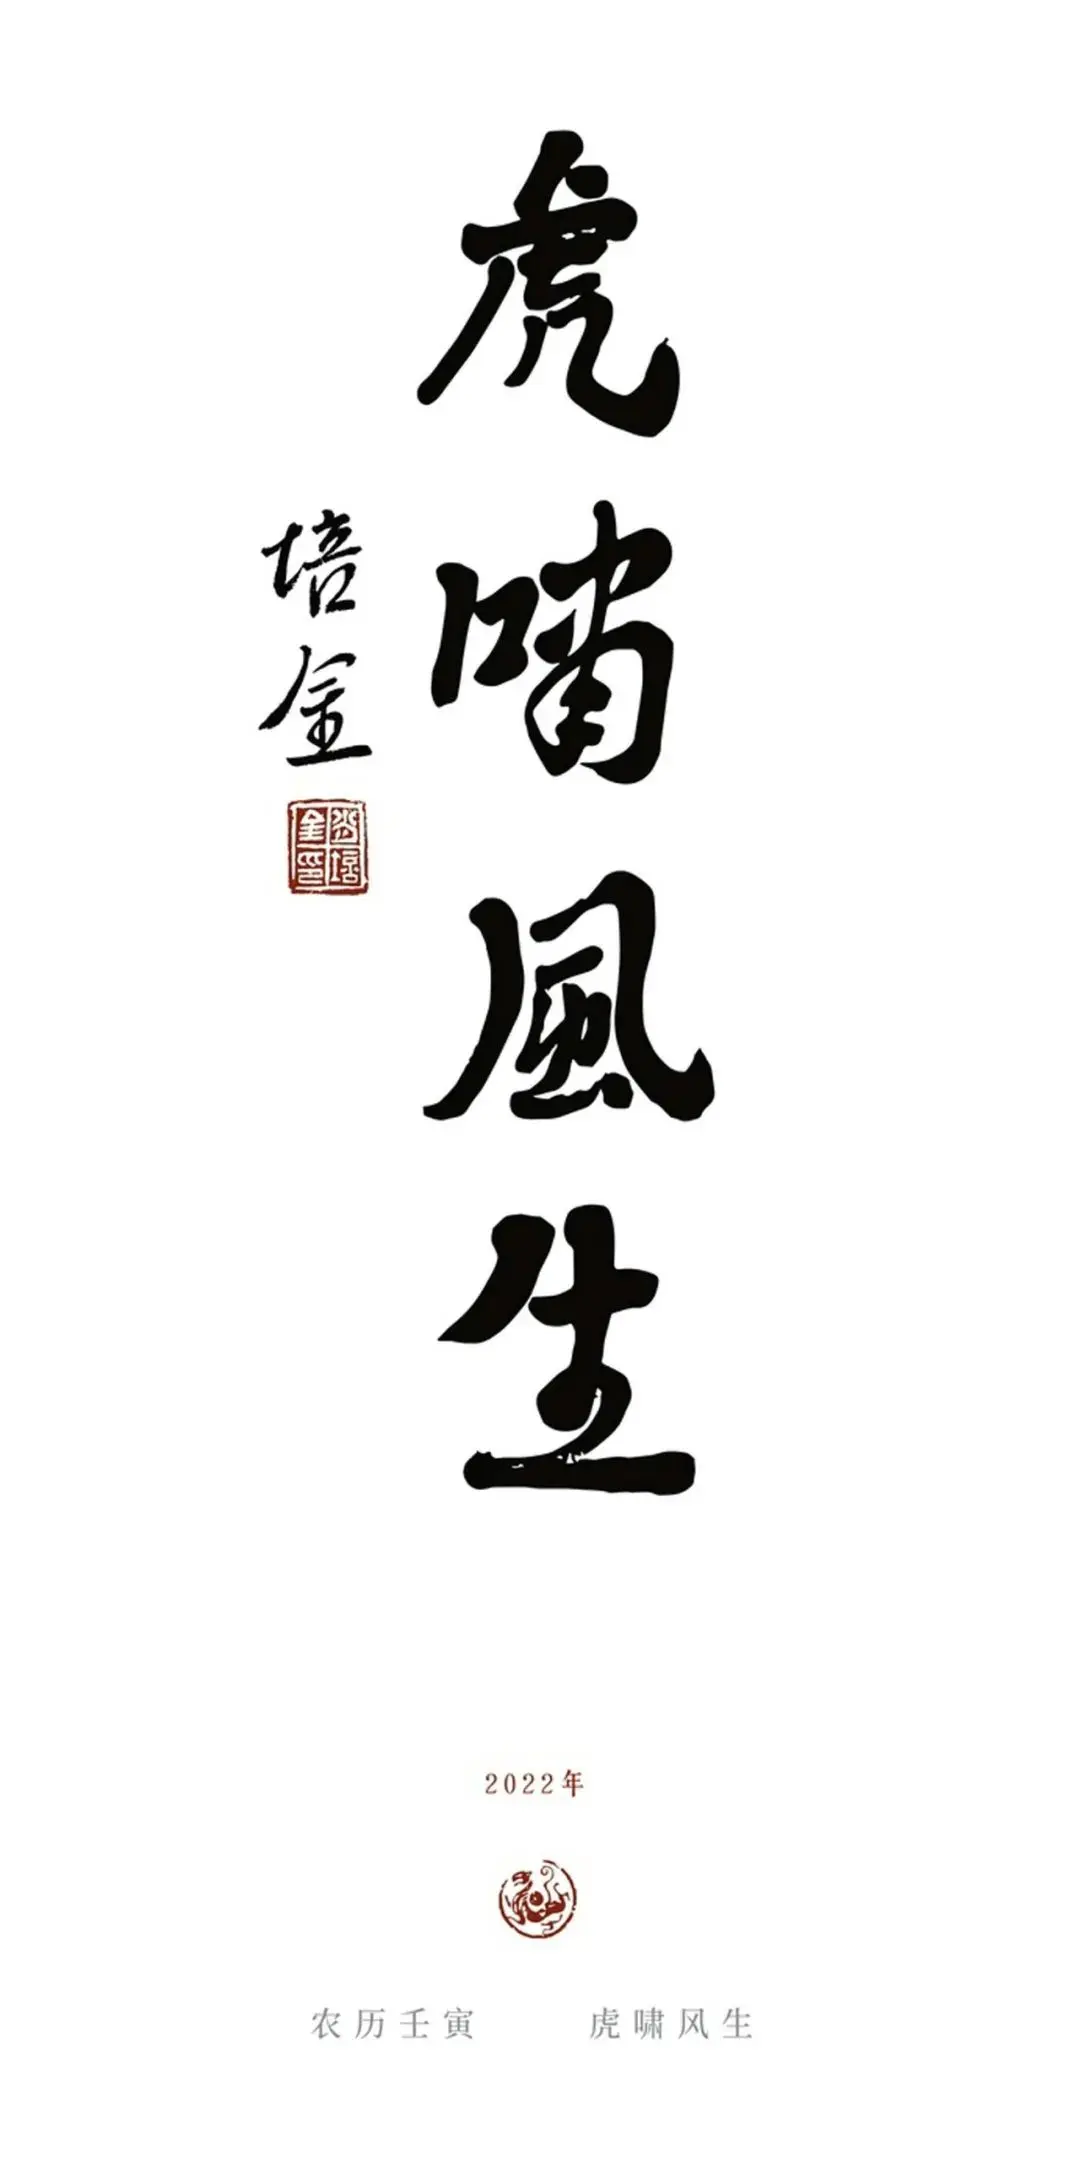 虎啸風生
培金
2022年
农历壬寅 虎啸风生